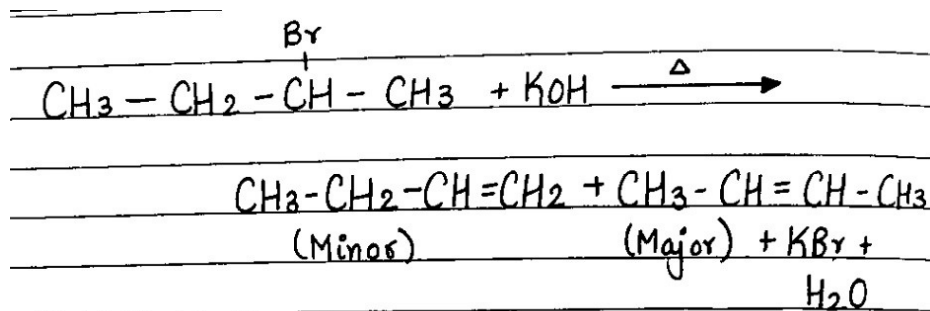 Br
CH3 — CH2 - CH - CH3 + KOH Δ
CH3-CH2-CH=CH2 + CH3-CH=CH-CH3
(Minor) (Major) + KBr +
H2O